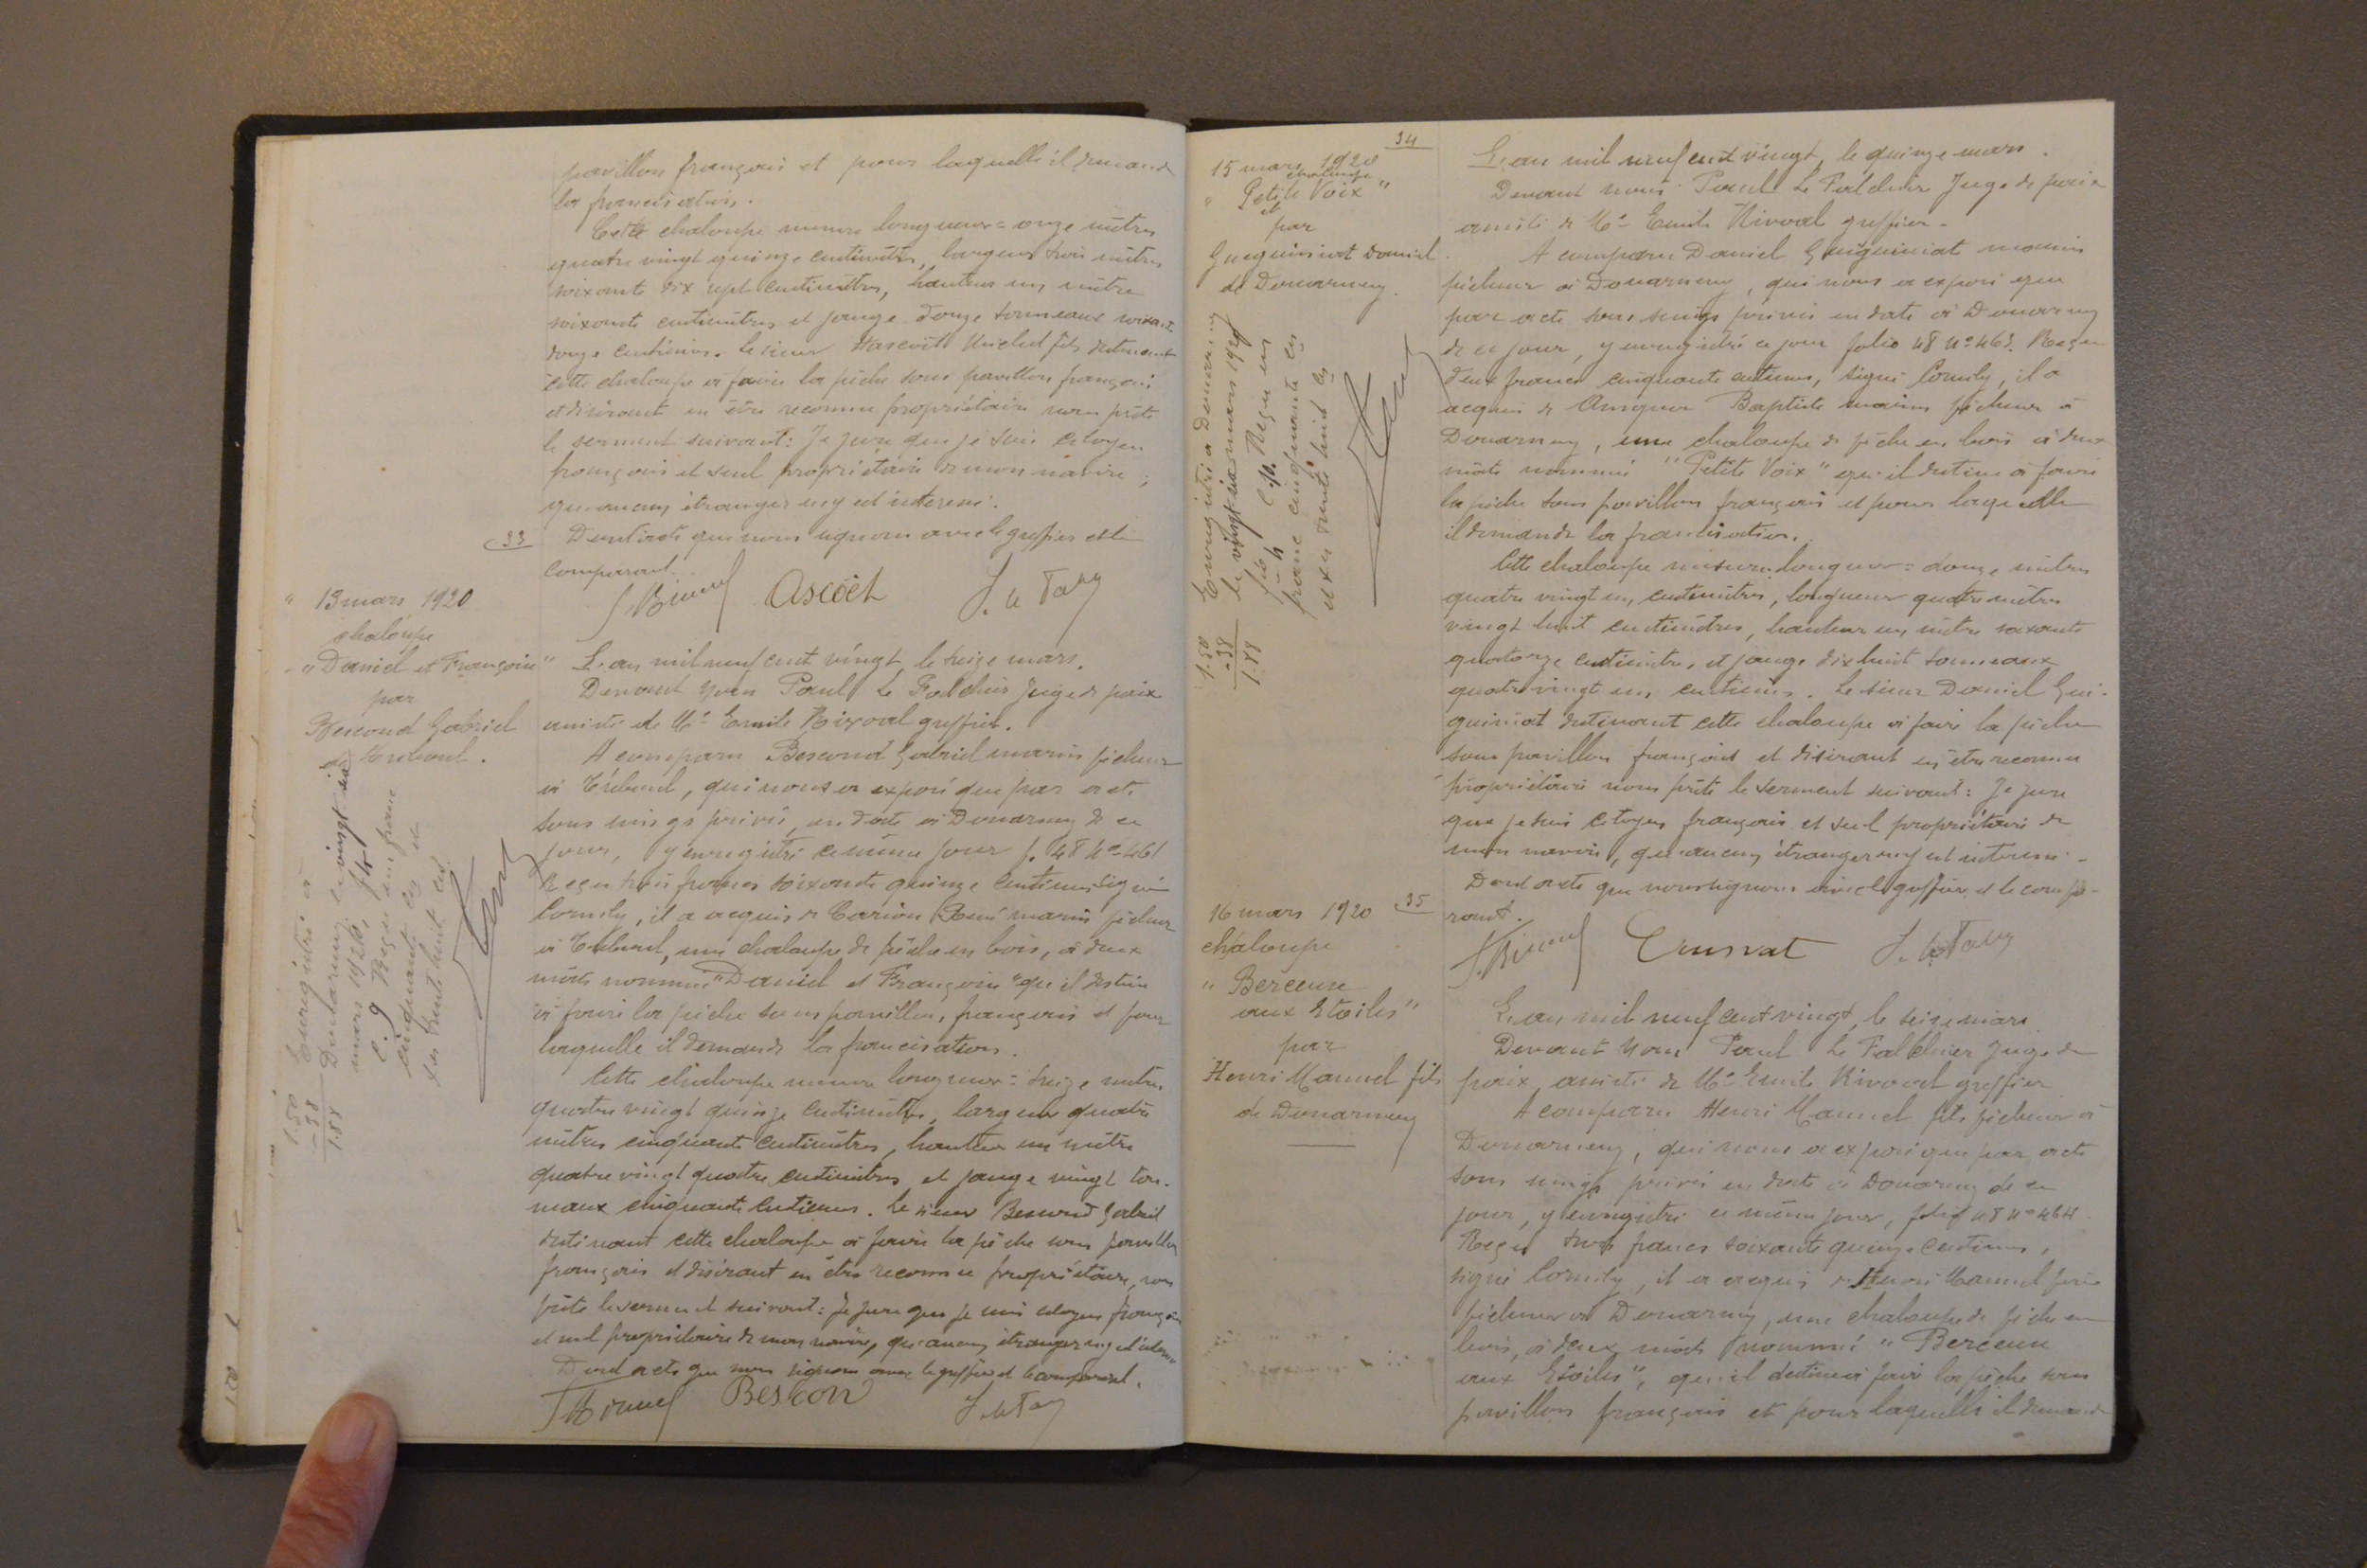 pavillon français et pour laquelle il demande
la francisation.
Cette chaloupe mesure longueur = onze mètres
quatre vingt quinze centimètres, largeur trois mètres
soixante dix sept centimètres, hauteur un mètre
soixante centimètres et jauge douze tonneaux soixante
douze centièmes. Le sieur Hascoët Michel fils destinant
cette chaloupe à faire la pêche sous pavillon français
et désirant en être reconnu propriétaire nous prête
le serment suivant : Je jure que je suis citoyen
français et seul propriétaire de mon navire ;
qu'aucun étranger n'y est intéressé.
Dont acte que nous signons avec le greffier et le
comparant.
Ascoët
33
13 mars 1920
chaloupe
"Daniel et Françoise"
par
Bescond Gabriel
de Tréboul.
Enregistré à
Douarnenez le vingt six
mars 1920, fo
c. 9 Reçu un franc
cinquante ces et
les trente huit ces
1.50
- 38
1.88
L'an mil neuf cent vingt, le treize mars.
Devant nous Paul Le Falchier Juge de paix
assisté de Me Emile Rivoal greffier.
A comparu Bescond Gabriel marin pêcheur
à Tréboul, qui nous a exposé que par acte
sous seings privés, en date à Douarnenez de ce
jour, y enregistré ce même jour f. 48 No 461
Reçu trois francs soixante quinze centimes signé
Cornily, il a acquis de Carion René marin pêcheur
à Tréboul, une chaloupe de pêche en bois, à deux
mâts nommée "Daniel et Françoise" qu'il destine
à faire la pêche sous pavillon français et pour
laquelle il demande la francisation.
Cette chaloupe mesure longueur = treize mètres
quatre vingt quinze centimètres, largeur quatre
mètres cinquante centimètres, hauteur un mètre
quatre vingt quatre centimètres et jauge vingt ton-
neaux cinquante centièmes. Le sieur Bescond Gabriel
destinant cette chaloupe à faire la pêche sous pavillon
français et désirant en être reconnu propriétaire, nous
prête le serment suivant : Je jure que je suis citoyen français
et seul propriétaire de mon navire, qu'aucun étranger n'y est intéressé
Dont acte que nous signons avec le greffier et le comparant.
Bescon
34
15 mars 1920
chaloupe
"Petite Voix"
par
Guiguiniat Daniel
de Douarnenez.
Enregistré à Douarnenez
le vingt six mars 1920
fo 4 c. 10. Reçu un
franc cinquante ces
et les trente huit ces
1.50
- 38
1.88
L'an mil neuf cent vingt, le quinze mars.
Devant nous Paul Le Falchier Juge de paix
assisté de Me Emile Rivoal greffier.
A comparu Daniel Guiguiniat marin
pêcheur à Douarnenez, qui nous a exposé que
par acte sous seings privés en date à Douarnenez
de ce jour, y enregistré ce jour folio 48 No 463. Reçu
deux francs cinquante centimes, signé Cornily, il a
acquis de Baptiste marin pêcheur à
Douarnenez, une chaloupe de pêche en bois à deux
mâts nommée "Petite Voix" qu'il destine à faire
la pêche sous pavillon français et pour laquelle
il demande la francisation.
Cette chaloupe mesure longueur = douze mètres
quatre vingt un centimètres, longueur quatre mètres
vingt huit centimètres, hauteur un mètre soixante
quatorze centimètres, et jauge dix huit tonneaux
quatre vingt un centièmes. Le sieur Daniel Gui-
guiniat destinant cette chaloupe à faire la pêche
sous pavillon français et désirant en être reconnu
propriétaire nous prête le serment suivant : Je jure
que je suis citoyen français et seul propriétaire de
mon navire, qu'aucun étranger n'y est intéressé.
Dont acte que nous signons avec le greffier et le compa-
rant.
35
16 mars 1920
chaloupe
"Berceuse
aux Etoiles"
par
Henri Manuel fils
de Douarnenez
L'an mil neuf cent vingt, le seize mars
Devant nous Paul Le Falchier Juge de
paix, assisté de Me Emile Rivoal greffier
A comparu Henri Manuel fils pêcheur à
Douarnenez, qui nous a exposé que par acte
sous seings privés en date à Douarnenez de ce
jour, y enregistré ce même jour, folio 48 No 464
Reçu trois francs soixante quinze centimes,
signé Cornily, il a acquis de Henri Manuel père
pêcheur à Douarnenez, une chaloupe de pêche en
bois, à deux mâts nommée "Berceuse
aux Etoiles", qu'il destine à faire la pêche sous
pavillon français et pour laquelle il demande